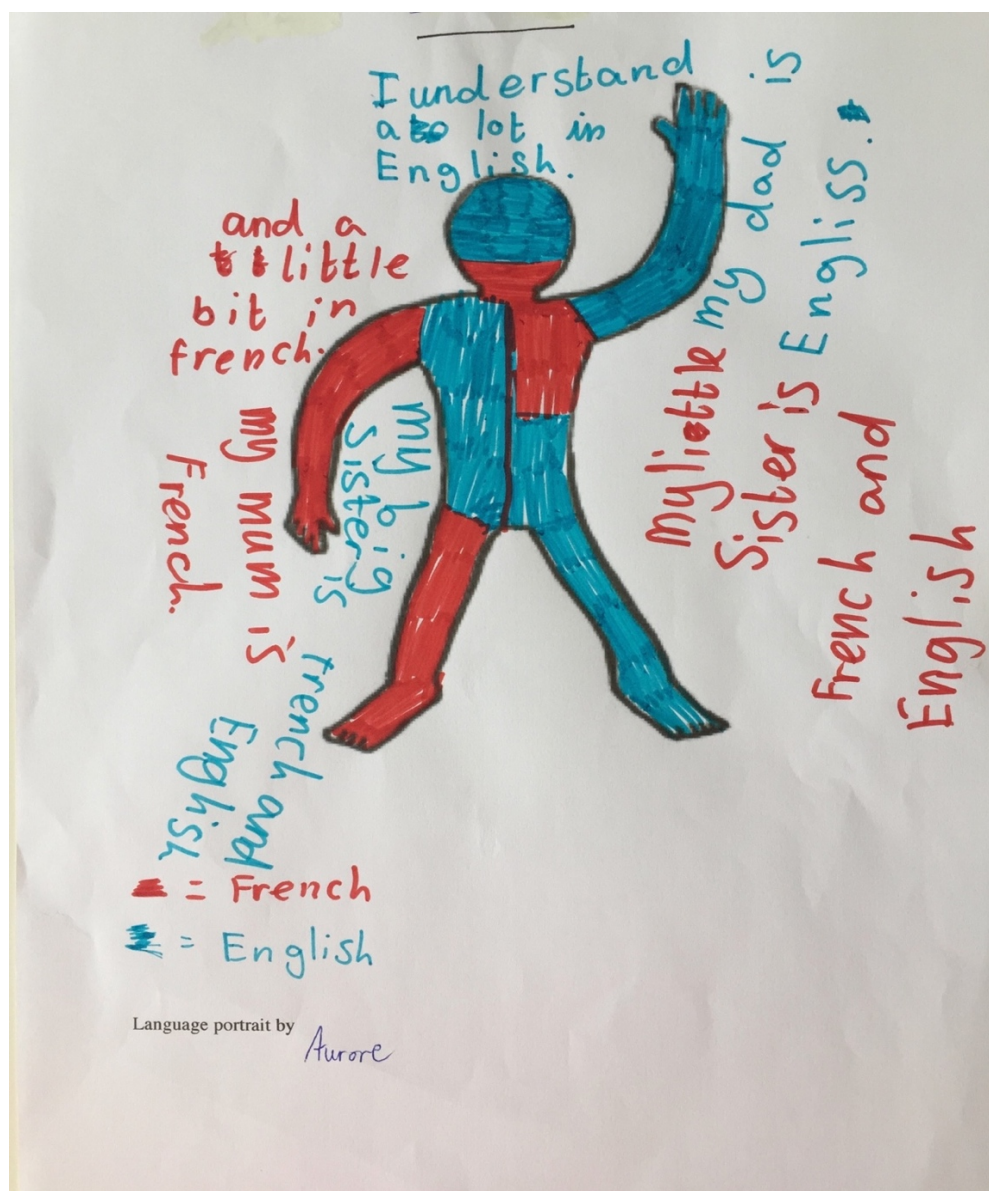 I understand
a lot in
English.
and a
little
bit in
french.
my mum is
French.
my big
Sister is
french and
English
my dad is
Engliss.
My little
Sister is
French and
English
= French
= English
Language portrait by
Aurore